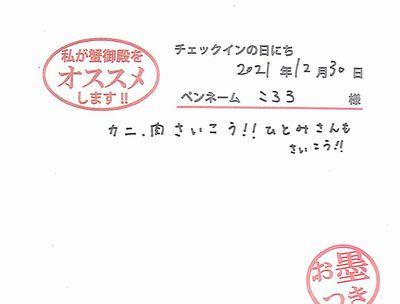 私が蟹御殿を
オススメ
します!!
チェックインの日にち
2021年12月30日
ペンネーム こころ 様
カニ、肉さいこう!!ひとみさんも
さいこう!!
お墨
つき